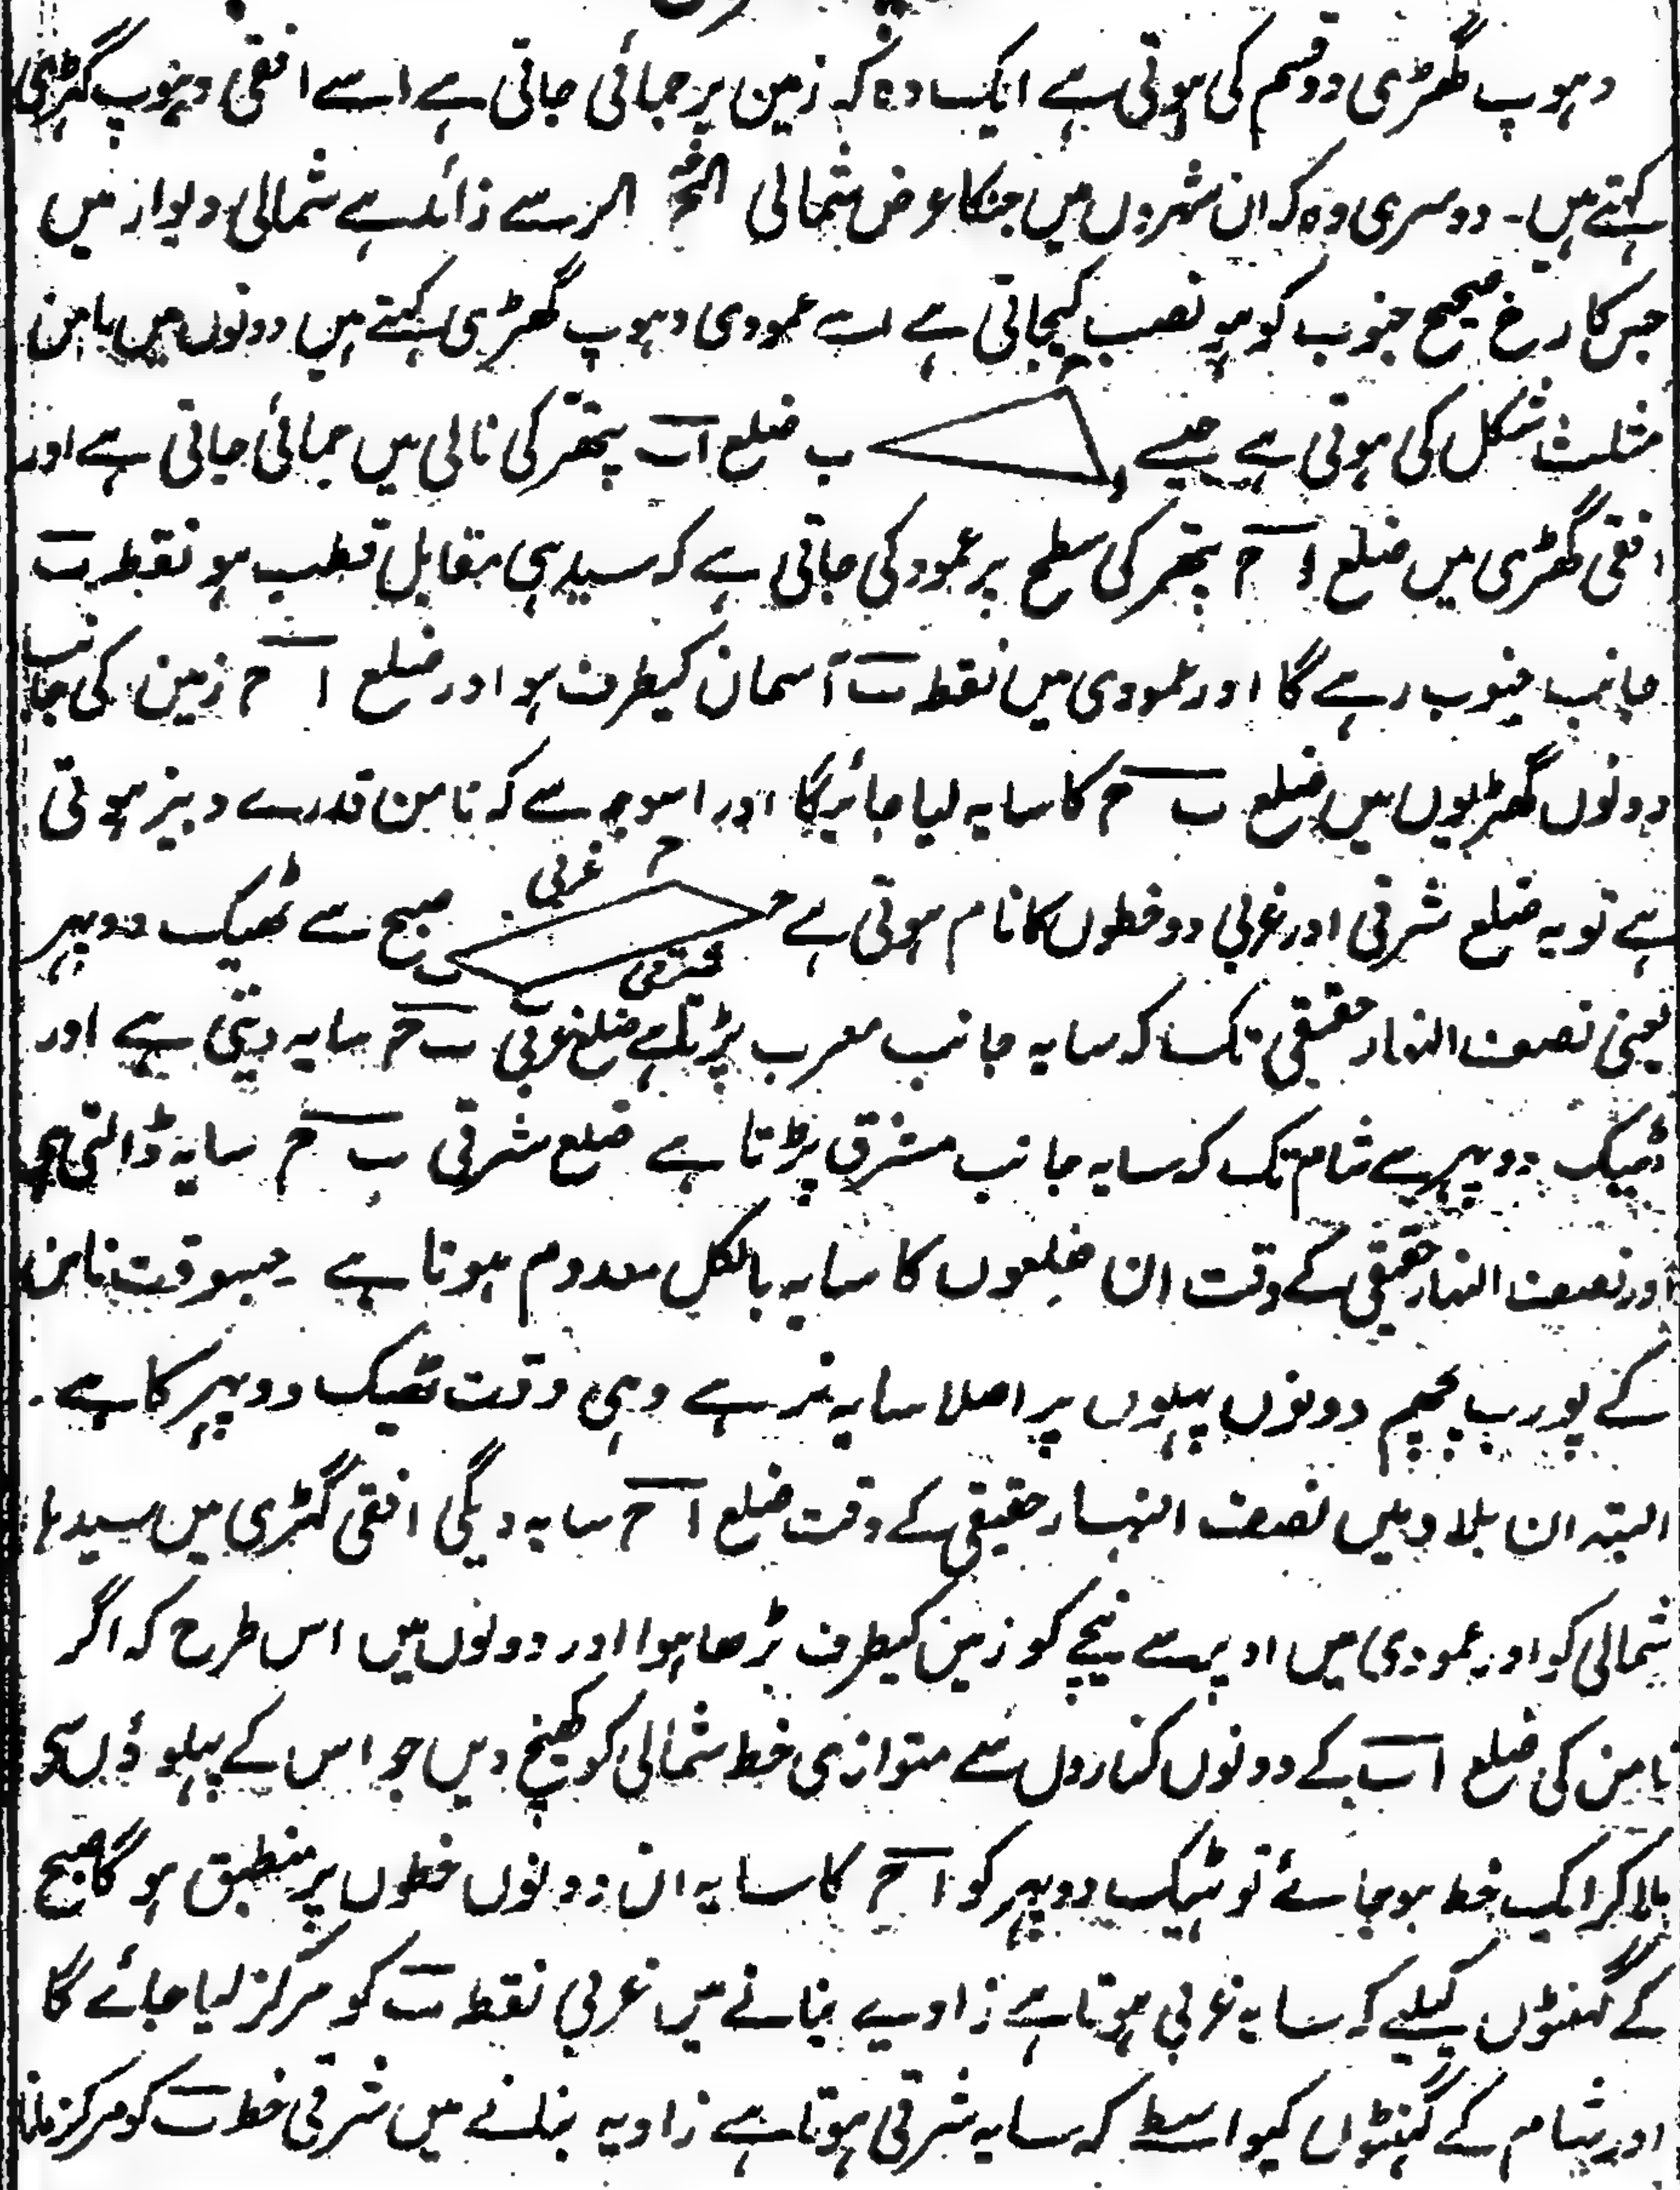 دہوپ گھڑی دو قسم کی ہوتی ہے ایک وہ کہ زمین پر جمائی جاتی ہے اسے افقی دہوپ گہڑی
کہتے ہیں۔ دوسری وہ کہ ان شہروں میں جنکا عرض شمالی سے زائد ہے شمالی دیوار میں
جس کا رخ صحیح جنوب کو ہو نصب کیجاتی ہے اسے عمودی دہوپ گھڑی کہتے ہیں دونوں میں نامن
مثلث شکل کی ہوتی ہے جیسے ب ضلع اب پتھر کی نالی میں جمائی جاتی ہے اور
افقی گھڑی میں ضلع ا ح پتھر کی سطح پر عمود کی جاتی ہے کہ سیدہی مقابل قطب ہو نقطہ ب
جانب جنوب رہے گا اور عمودی میں نقطہ ب آسمان کیطرف ہو اور ضلع ا ح زمین کی جانب
دونوں گھڑیوں میں ضلع ب ح کا سایہ لیا جائیگا اور اسوجہ سے کہ نامن قدرے دبیز ہوتی
ہے تو یہ ضلع شرقی اور غربی دو خطوں کا نام ہوتی ہے ح ح غربی شرقی ب ب صبح سے ٹھیک دوپہر
یعنی نصف النہار حقیقی تک کہ سایہ جانب مغرب پڑتا ہے ضلع غربی ب ح سایہ دیتی ہے اور
ٹھیک دوپہر سے شام تک کہ سایہ جانب مشرق پڑتا ہے ضلع شرقی ب ح سایہ ڈالتی ہی
اور نصف النہار حقیقی کے وقت ان ضلعوں کا سایہ بالکل معدوم ہوتا ہے ۔ جسوقت نامن
کے پورب پچھم دونوں پہلوں پر اصلا سایہ نہ رہے وہی وقت ٹھیک دوپہر کا ہے ۔
البتہ ان بلاد میں نصف النہار حقیقی کے وقت ضلع ا ح سایہ دیگی افقی گہڑی میں سیدہا
شمالی کو اور عمودی میں اوپر سے نیچے کو زمین کیطرف بڑھا ہوا اور دونوں میں اس طرح کہ اگر
نامن کی ضلع اب کے دونوں کناروں سے متوازی خط شمالی کو کھینچ دیں جو اس کے پہلوؤں سی
ملا کر ایک خط ہو جائے تو ٹہیک دوپہر کو ا ح کا سایہ ان دونوں خطوں پر منطبق ہو گا صبح
کے گہنٹوں کیلیے کہ سایہ غربی ہوتا ہے زاویے بنانے میں غربی نقطہ ب کو مرکز لیا جائے گا
اور شام کے گہنٹوں کیواسطے کہ سایہ شرقی ہوتا ہے زاویہ بنانے میں شرقی خط ب کو مرکز مانا